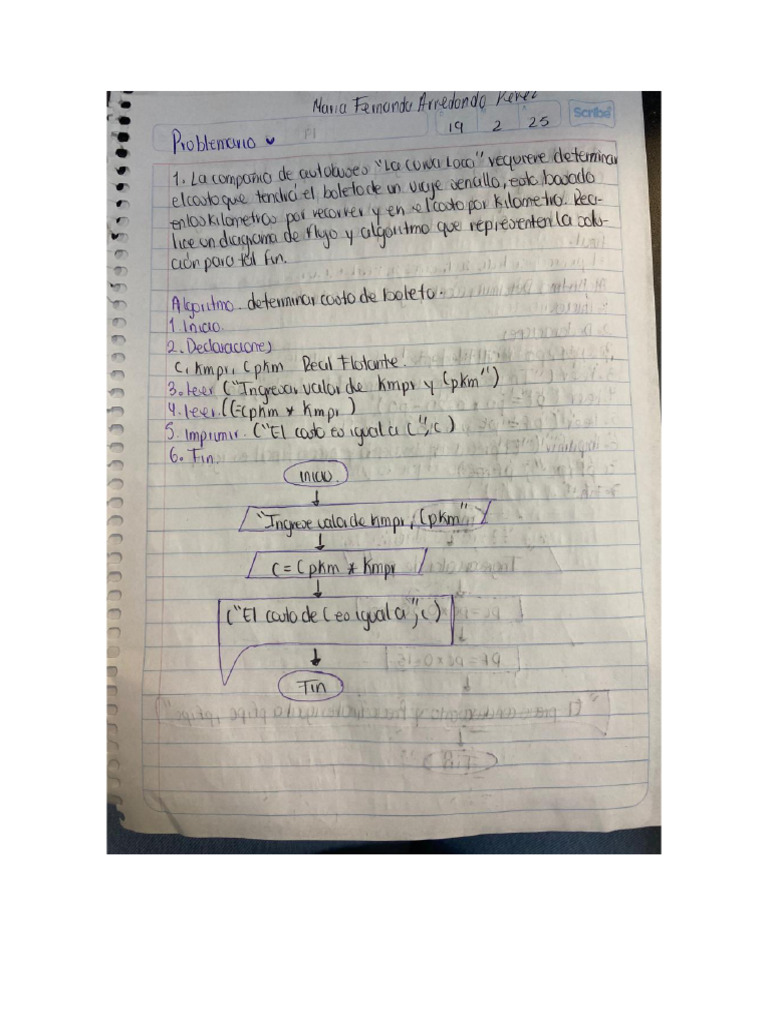 Maria Fernanda Arredondo Perez
19 2 25
Scribe
Problemario
1. La compañia de autobuses "La curva loca" requiere determinar
el costo que tendrá el boleto de un viaje sencillo, esto basado
en los kilometros por recorrer y en el costo por kilometro. Rea-
lice un diagrama de flujo y algoritmo que representen la solu-
ción para tal fin.
Algoritmo. determinar costo de boleto.
1 Inicio.
2. Declaraciones
C, Kmpr, Cpkm Real Flotante.
3. Leer ("Ingresar valor de Kmpr y Cpkm")
4. Leer (C=Cpkm * Kmpr)
5. Imprimir. ("El costo es igual a C", C)
6. Fin.
Inicio.
"Ingrese valor de kmpr, Cpkm"
C = Cpkm * Kmpr
("El costo de C es igual a", C)
Fin